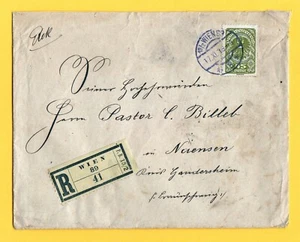 Seiner Hochehrwürden
Herrn Pastor C. Billeb
in Naensen
Kreis Gandersheim
(: Braunschweig :)
WIEN
89
41
R